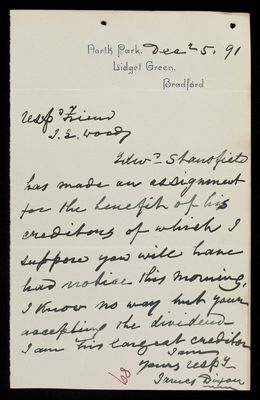 North Park,
Lidget Green,
Bradford
Decr 5. 91
Respd Friend
J. E. Woody
Edwn Stansfield
has made an assignment
for the benefit of his
creditors of which I
suppose you will have
had notice this morning,
I know no way but your
accepting the dividend
I am his largest creditor
I am
yours respy
James Dixon
68